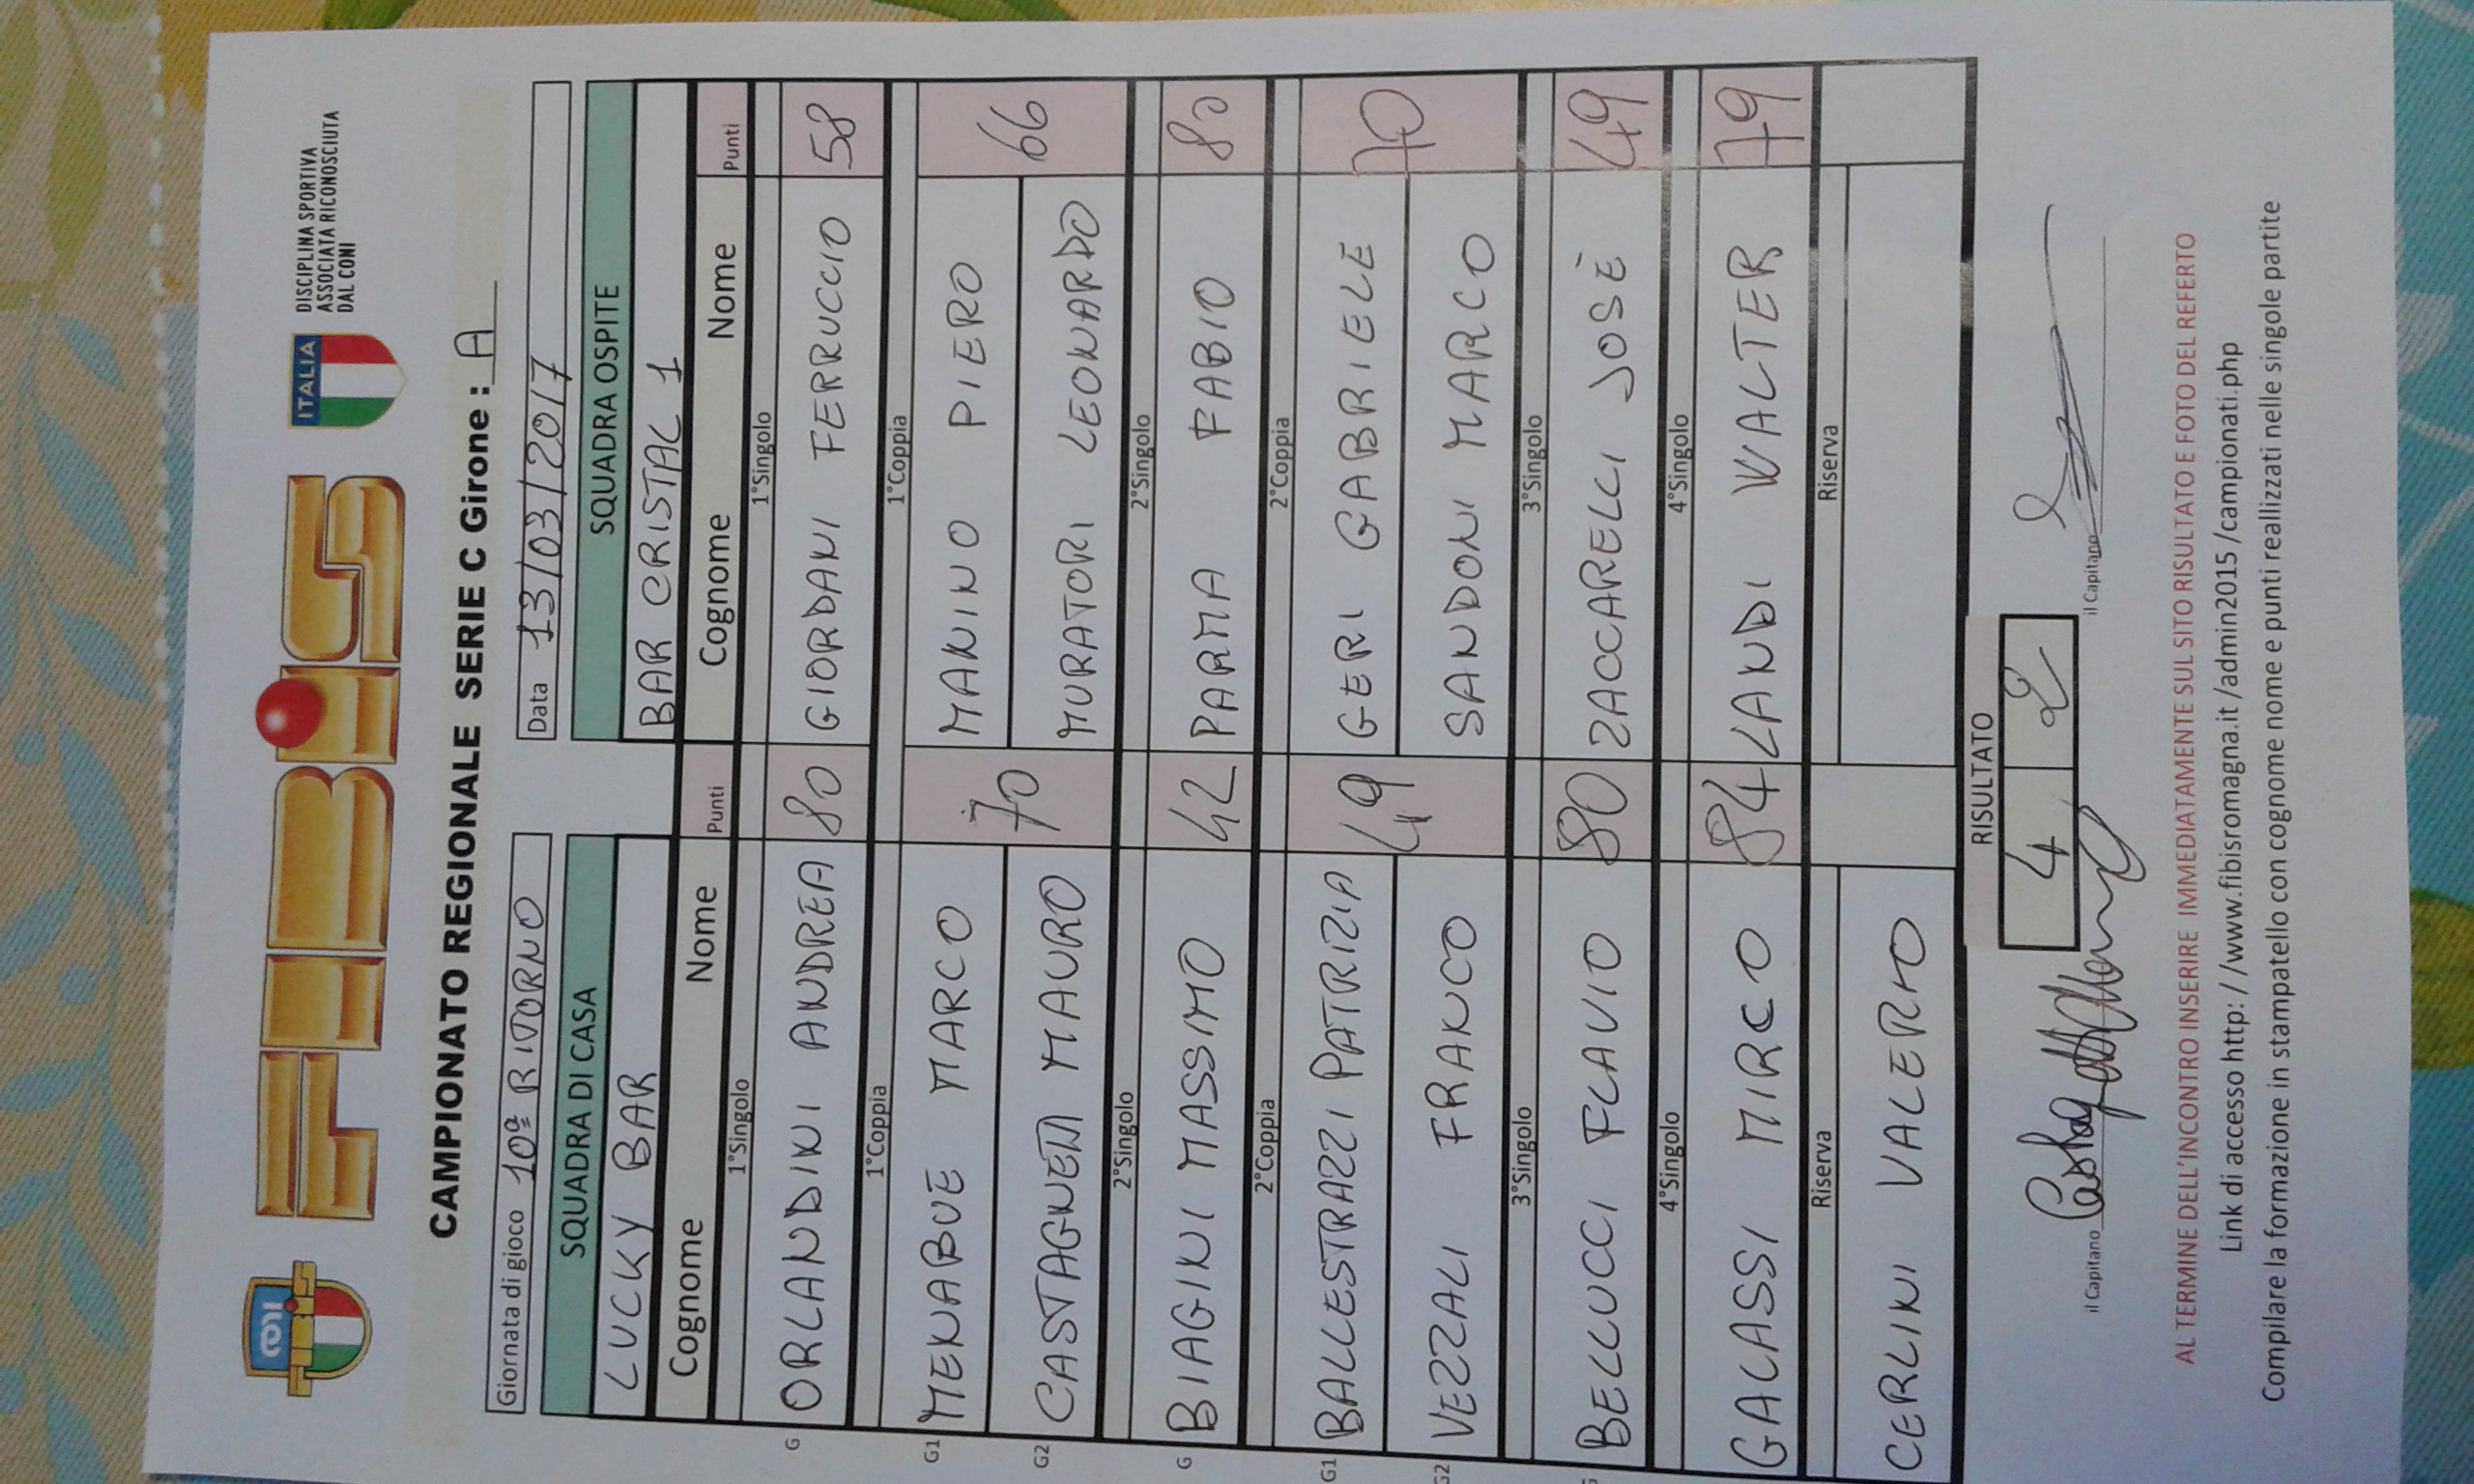 FIBiS
ITALIA
DISCIPLINA SPORTIVA
ASSOCIATA RICONOSCIUTA
DAL CONI
CAMPIONATO REGIONALE SERIE C Girone : A
Giornata di gioco 10ª RITORNO Data 13/03/2017
SQUADRA DI CASA SQUADRA OSPITE
LUCKY BAR BAR CRISTAL 1
Cognome Nome Punti Cognome Nome Punti
1°Singolo 1°Singolo
G ORLANDINI ANDREA 80 GIORDANI FERRUCCIO 58
1°Coppia 1°Coppia
G1 MENABUE MARCO 70 MANINO PIERO 66
G2 CASTAGNETTI MAURO MURATORI LEONARDO
2°Singolo 2°Singolo
G BIAGINI MASSIMO 42 PARMA FABIO 80
2°Coppia 2°Coppia
G1 BALLESTRAZZI PATRIZIA 49 GERI GABRIELE 70
G2 VEZZALI FRANCO SANDONI MARCO
3°Singolo 3°Singolo
BELLUCCI FLAVIO 80 ZACCARELLI JOSÈ 49
4°Singolo 4°Singolo
GALASSI MIRCO 84 LANDI WALTER 79
Riserva Riserva
CERLINI VALERIO
RISULTATO
4 2
il Capitano il Capitano
AL TERMINE DELL'INCONTRO INSERIRE IMMEDIATAMENTE SUL SITO RISULTATO E FOTO DEL REFERTO
Link di accesso http: / /www.fibisromagna.it /admin2015 /campionati.php
Compilare la formazione in stampatello con cognome nome e punti reallizzati nelle singole partite